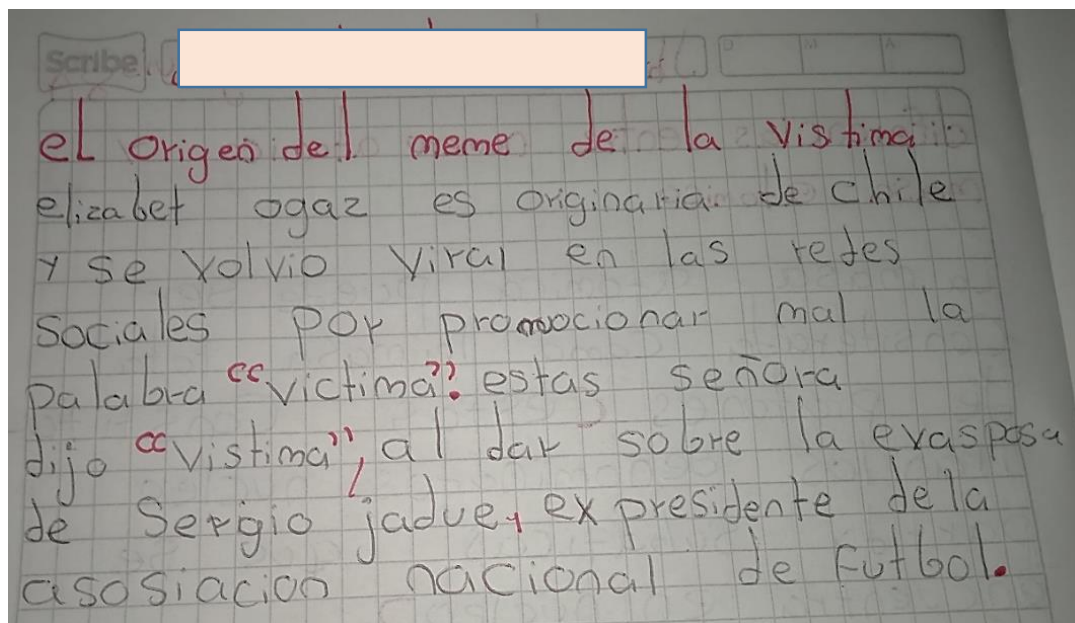 Scribe
el origen del meme de la vistima
elizabet ogaz es originaria de chile
y se volvio viral en las redes
sociales por promocionar mal la
palabra “victima”. estas señora
dijo “vistima”, al dar sobre la exasposa
de Sergio jadue, ex presidente dela
asosiacion nacional de futbol.